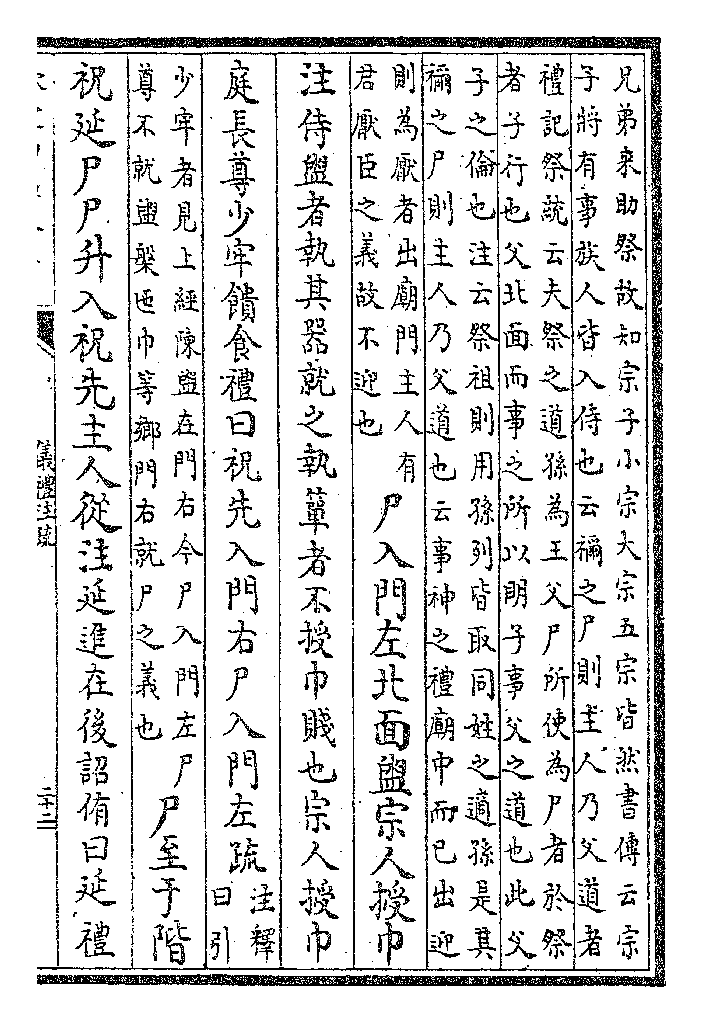 兄弟来助祭故知宗子小宗大宗五宗皆然書傳云宗
子將有事族人皆入侍也云禰之尸則主人乃父道者
禮記祭統云夫祭之道孫為王父尸所使為尸者於祭
者子行也父北面而事之所以明子事父之道也此父
子之倫也注云祭祖則用孫列皆取同姓之適孫是其
禰之尸則主人乃父道也云事神之禮廟中而已出迎
則為厭者出廟門主人有
君厭臣之義故不迎也
尸入門左北面盥宗人授巾
注侍盥者執其器就之執簞者不授巾賤也宗人授巾
庭長尊少牢饋食禮曰祝先入門右尸入門左疏
注釋
曰引
少牢者見上經陳盥在門右今尸入門左尸
尊不就盥槃匜巾等鄉門右就尸之義也
尸至于階
祝延尸尸升入祝先主人從注延進在後詔侑曰延禮
儀禮注疏
二十二